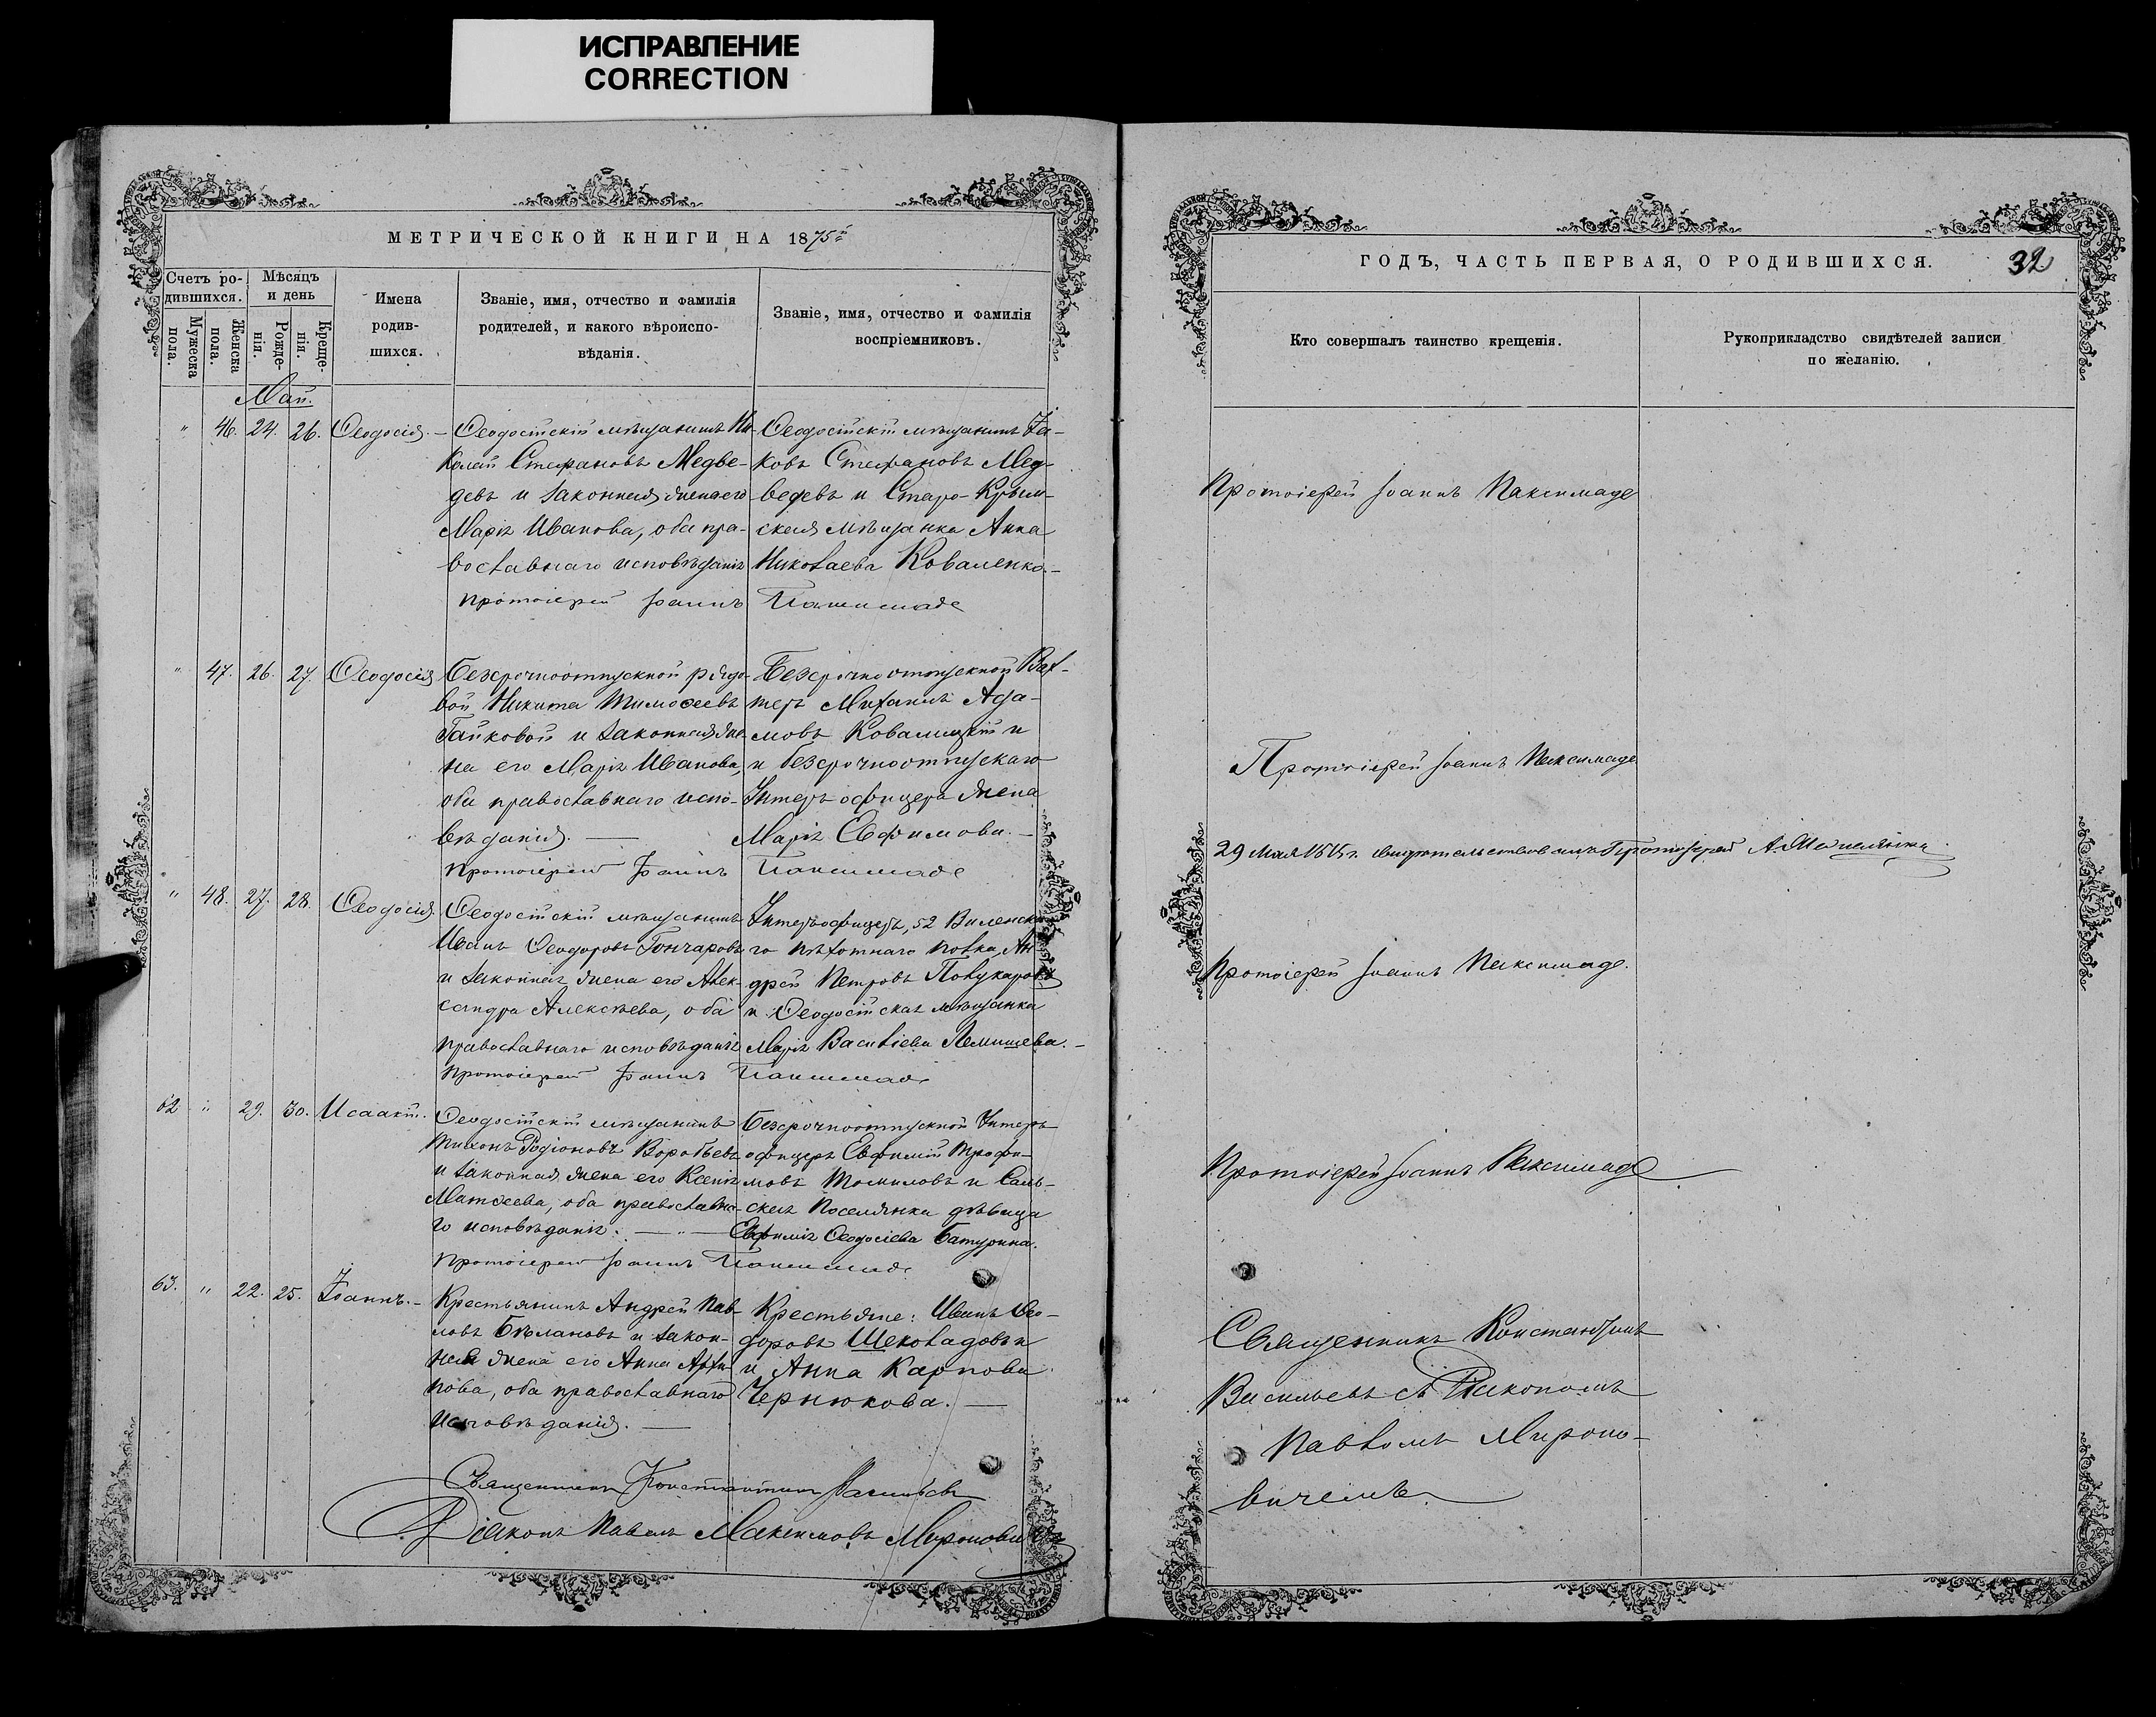 ИСПРАВЛЕНИЕ
CORRECTION
МЕТРИЧЕСКОЙ КНИГИ НА 1875й
Счетъ ро-
дившихся.
Мужеска
пола.
Женска
пола.
Мѣсяцъ
и день
Рожде-
нія.
Креще-
нія.
Имена
родив-
шихся.
Званіе, имя, отчество и фамилія
родителей, и какого вѣроиспо-
вѣданія.
Званіе, имя, отчество и фамилія
воспріемниковъ.
Май.
" 46. 24. 26. Ѳеодосія. –
Ѳеодосійскій мѣщанинъ Ни-
колай Стефановъ Медве-
девъ и законная жена его
Марія Иванова, оба пра-
вославнаго исповѣданія
Ѳеодосійскій мѣщанинъ Іа-
ковъ Стефановъ Мед-
ведевъ и Старо-Крым-
ская мѣщанка Анна
Николаева Коваленко. –
Протоіерей Іоаннъ Паксимаде
" 47. 26. 27. Ѳеодосія
Безсрочноотпускной рядо-
вой Никита Тимоѳеевъ
Гайковой и законная же-
на его Марія Иванова,
оба православнаго испо-
вѣданія. —
Безсрочноотпускной Вах-
теръ Михаилъ Ада-
мовъ Ковалицкій и
и безсрочноотпускаго
Унтеръ офицера жена
Марія Евфимова. –
Протоіерей Іоаннъ Паксимаде
" 48. 27. 28. Ѳеодосія.
Ѳеодосійскій мѣщанинъ
Иванъ Ѳеодоровъ Гончаровъ
и законная жена его Алек-
сандра Алексѣева, оба
православнаго исповѣданія
Унтеръофицеръ, 52 Виленска-
го пѣхотнаго полка, Ан-
дрей Петровъ Полукаровъ
и Ѳеодосійская мѣщанка
Марія Василіева Лемишева. –
Протоіерей Іоаннъ Паксимаде
62 " 29. 30. Исаакій.
Ѳеодосійскій мѣщанинъ
Тихонъ Родіоновъ Воробьевъ
и законная жена его Ксенія
Матѳеева, оба православна-
го исповѣданія. — " —
Безсрочноотпускной Унтеръ
офицеръ Евфимій Трофи-
мовъ Томиловъ и Саль-
ская поселянка дѣвица
Евфимія Ѳеодосіева Батурина.
Протоіерей Іоаннъ Паксимаде
63. " 22. 25. Іоаннъ. –
Крестьянинъ Андрей Пав-
ловъ Бѣлановъ и закон-
ная жена его Анна
нова, оба православнаго
исповѣданія. —
Крестьяне: Иванъ Ѳео-
доровъ Шеколадовъ и
и Анна Карпова
Чернюкова. —
Священникъ Константинъ Васильевъ
Діаконъ Павелъ Максимовъ Мироновичъ
ГОДЪ, ЧАСТЬ ПЕРВАЯ, О РОДИВШИХСЯ.
32
Кто совершалъ таинство крещенія.
Рукоприкладство свидѣтелей записи
по желанію.
Протоіерей Іоаннъ Паксимаде
Протоіерей Іоаннъ Паксимаде
29 Мая 1875 г. свидѣтельствовалъ Протоіерей А.
Протоіерей Іоаннъ Паксимаде.
Протоіерей Іоаннъ Паксимаде
Священникъ Константинъ
Васильевъ съ Діакономъ
Павломъ Мироно-
вичемъ